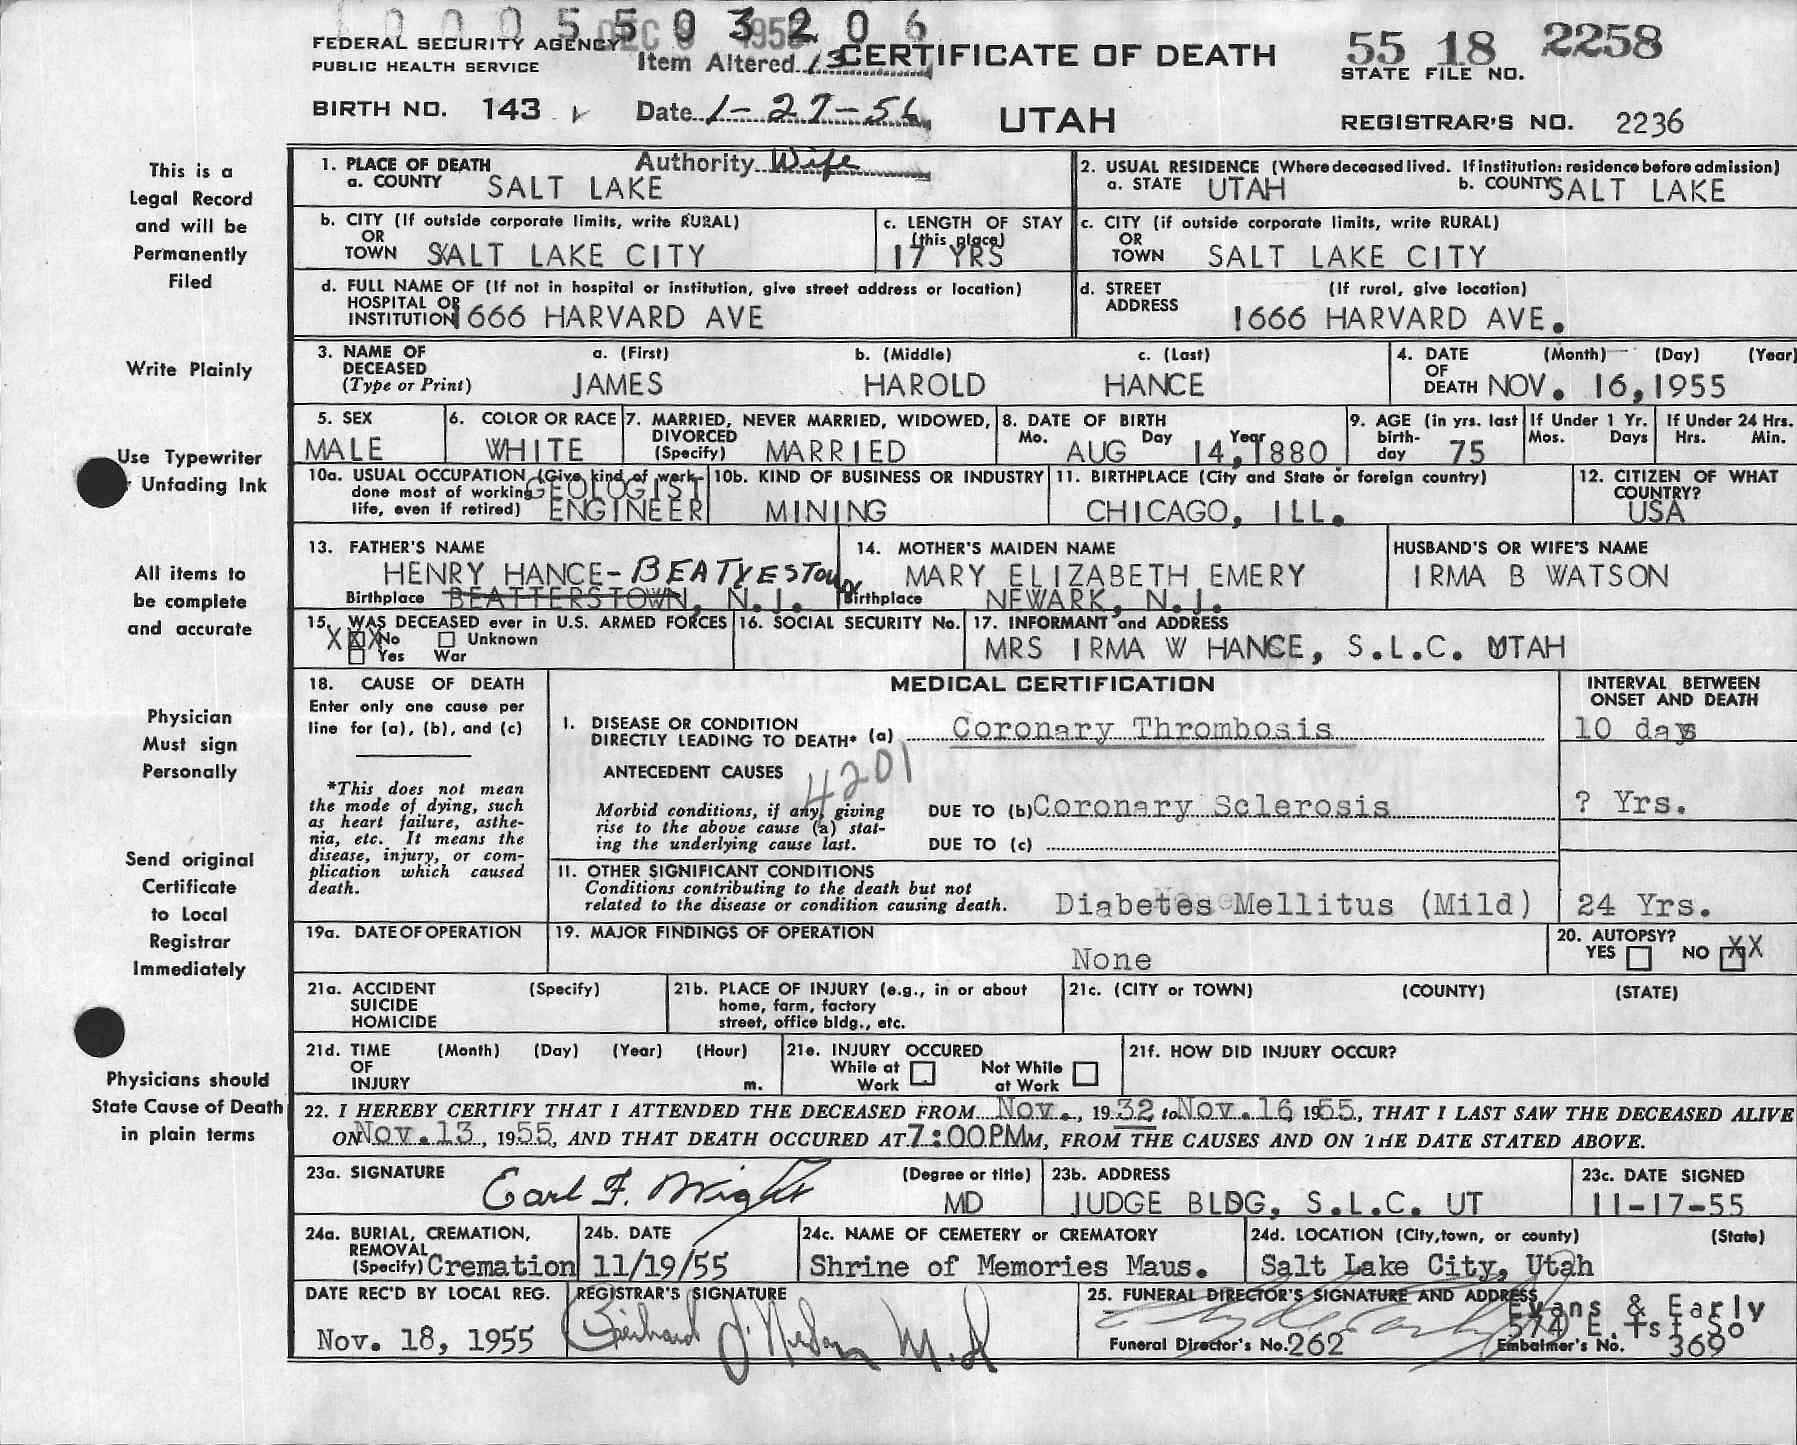 0 0 0 5 5 0 3 2 0 6
FEDERAL SECURITY AGENCY
PUBLIC HEALTH SERVICE
DEC 195
Item Altered 13
CERTIFICATE OF DEATH
55 18 2258
STATE FILE NO.
BIRTH NO. 143
Date 1-27-56
UTAH
REGISTRAR'S NO. 2236
Authority Wife
This is a
Legal Record
and will be
Permanently
Filed
Write Plainly
Use Typewriter
Unfading Ink
All items to
be complete
and accurate
Physician
Must sign
Personally
Send original
Certificate
to Local
Registrar
Immediately
Physicians should
State Cause of Death
in plain terms
1. PLACE OF DEATH
a. COUNTY SALT LAKE
2. USUAL RESIDENCE (Where deceased lived. If institution: residence before admission)
a. STATE UTAH b. COUNTY SALT LAKE
b. CITY (If outside corporate limits, write RURAL)
OR
TOWN SALT LAKE CITY
c. LENGTH OF STAY
(this place)
17 YRS
c. CITY (if outside corporate limits, write RURAL)
OR
TOWN SALT LAKE CITY
d. FULL NAME OF (If not in hospital or institution, give street address or location)
HOSPITAL OR
INSTITUTION 1666 HARVARD AVE
d. STREET (If rural, give location)
ADDRESS 1666 HARVARD AVE.
3. NAME OF DECEASED
(Type or Print)
a. (First) b. (Middle) c. (Last)
JAMES HAROLD HANCE
4. DATE OF DEATH (Month) (Day) (Year)
NOV. 16, 1955
5. SEX
MALE
6. COLOR OR RACE
WHITE
7. MARRIED, NEVER MARRIED, WIDOWED,
DIVORCED
(Specify) MARRIED
8. DATE OF BIRTH
Mo. Day Year
AUG 14, 1880
9. AGE (in yrs. last
birth-
day 75
If Under 1 Yr.
Mos. Days
If Under 24 Hrs.
Hrs. Min.
10a. USUAL OCCUPATION (Give kind of work
done most of working
life, even if retired)
GEOLOGIST
ENGINEER
10b. KIND OF BUSINESS OR INDUSTRY
MINING
11. BIRTHPLACE (City and State or foreign country)
CHICAGO, ILL.
12. CITIZEN OF WHAT
COUNTRY?
USA
13. FATHER'S NAME
HENRY HANCE-
Birthplace BEATTERSTOWN, N.J.
14. MOTHER'S MAIDEN NAME
MARY ELIZABETH EMERY
Birthplace NEWARK, N.J.
HUSBAND'S OR WIFE'S NAME
IRMA B WATSON
15. WAS DECEASED ever in U.S. ARMED FORCES
XXX No Unknown
Yes War
16. SOCIAL SECURITY No.
17. INFORMANT and ADDRESS
MRS IRMA W HANCE, S.L.C. UTAH
18. CAUSE OF DEATH
Enter only one cause per
line for (a), (b), and (c)
*This does not mean
the mode of dying, such
as heart failure, asthe-
nia, etc. It means the
disease, injury, or com-
plication which caused
death.
MEDICAL CERTIFICATION
INTERVAL BETWEEN
ONSET AND DEATH
I. DISEASE OR CONDITION
DIRECTLY LEADING TO DEATH* (a) Coronary Thrombosis 10 days
ANTECEDENT CAUSES
4201
Morbid conditions, if any, giving
rise to the above cause (a) stat-
ing the underlying cause last.
DUE TO (b) Coronary Sclerosis ? Yrs.
DUE TO (c)
II. OTHER SIGNIFICANT CONDITIONS
Conditions contributing to the death but not
related to the disease or condition causing death.
Diabetes Mellitus (Mild) 24 Yrs.
19a. DATE OF OPERATION
19. MAJOR FINDINGS OF OPERATION
None
20. AUTOPSY?
YES NO XX
21a. ACCIDENT (Specify)
SUICIDE
HOMICIDE
21b. PLACE OF INJURY (e.g., in or about
home, farm, factory
street, office bldg., etc.
21c. (CITY or TOWN) (COUNTY) (STATE)
21d. TIME (Month) (Day) (Year) (Hour)
OF
INJURY m.
21e. INJURY OCCURED
While at Work
Not While at Work
21f. HOW DID INJURY OCCUR?
22. I HEREBY CERTIFY THAT I ATTENDED THE DECEASED FROM Nov., 1932, to Nov. 16 1955, THAT I LAST SAW THE DECEASED ALIVE
ON Nov. 13, 1955, AND THAT DEATH OCCURED AT 7:00PM m, FROM THE CAUSES AND ON THE DATE STATED ABOVE.
23a. SIGNATURE (Degree or title)
Earl F. Wright MD
23b. ADDRESS
JUDGE BLDG, S.L.C. UT
23c. DATE SIGNED
11-17-55
24a. BURIAL, CREMATION,
REMOVAL
(Specify) Cremation
24b. DATE
11/19/55
24c. NAME OF CEMETERY or CREMATORY
Shrine of Memories Maus.
24d. LOCATION (City, town, or county) (State)
Salt Lake City, Utah
DATE REC'D BY LOCAL REG.
Nov. 18, 1955
REGISTRAR'S SIGNATURE
M.d
25. FUNERAL DIRECTOR'S SIGNATURE AND ADDRESS
Evans & Early
574 E. 1st So
Funeral Director's No. 262
Embalmer's No. 369